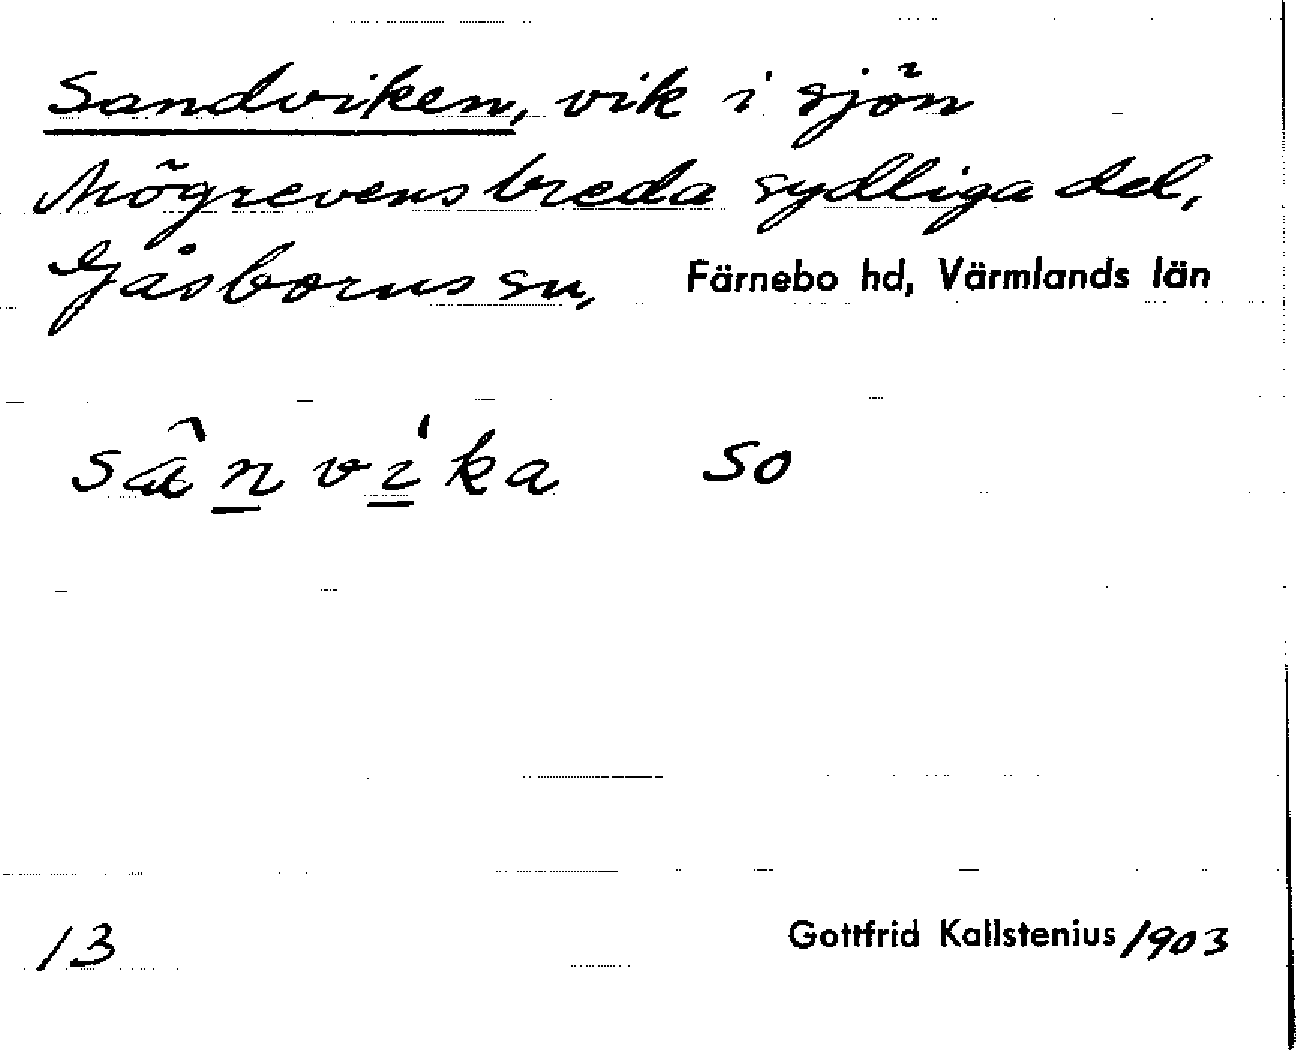 Sandviken, vik i sjön
Mögrevens breda sydliga del,
Gåsborns sn, Färnebo hd, Värmlands län
sânvika so
13 Gottfrid Kallstenius 1903